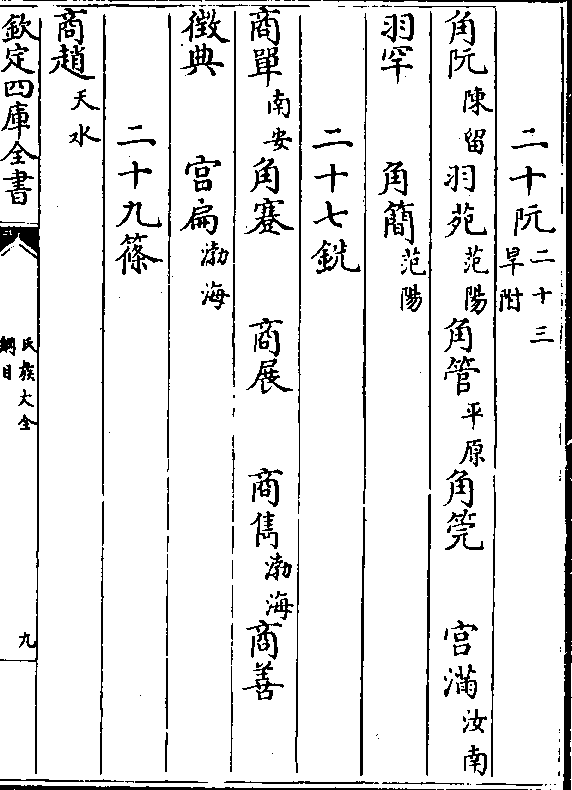 二十阮二十三旱附
角阮陳留 羽苑范陽 角管平原 角筦 宫滿汝南
羽罕 角簡范陽
二十七銑
商單南安 角蹇 商展 商雋渤海 商善
徵典 宫扁渤海
二十九篠
商趙天水
欽定四庫全書 氏族大全綱目 九